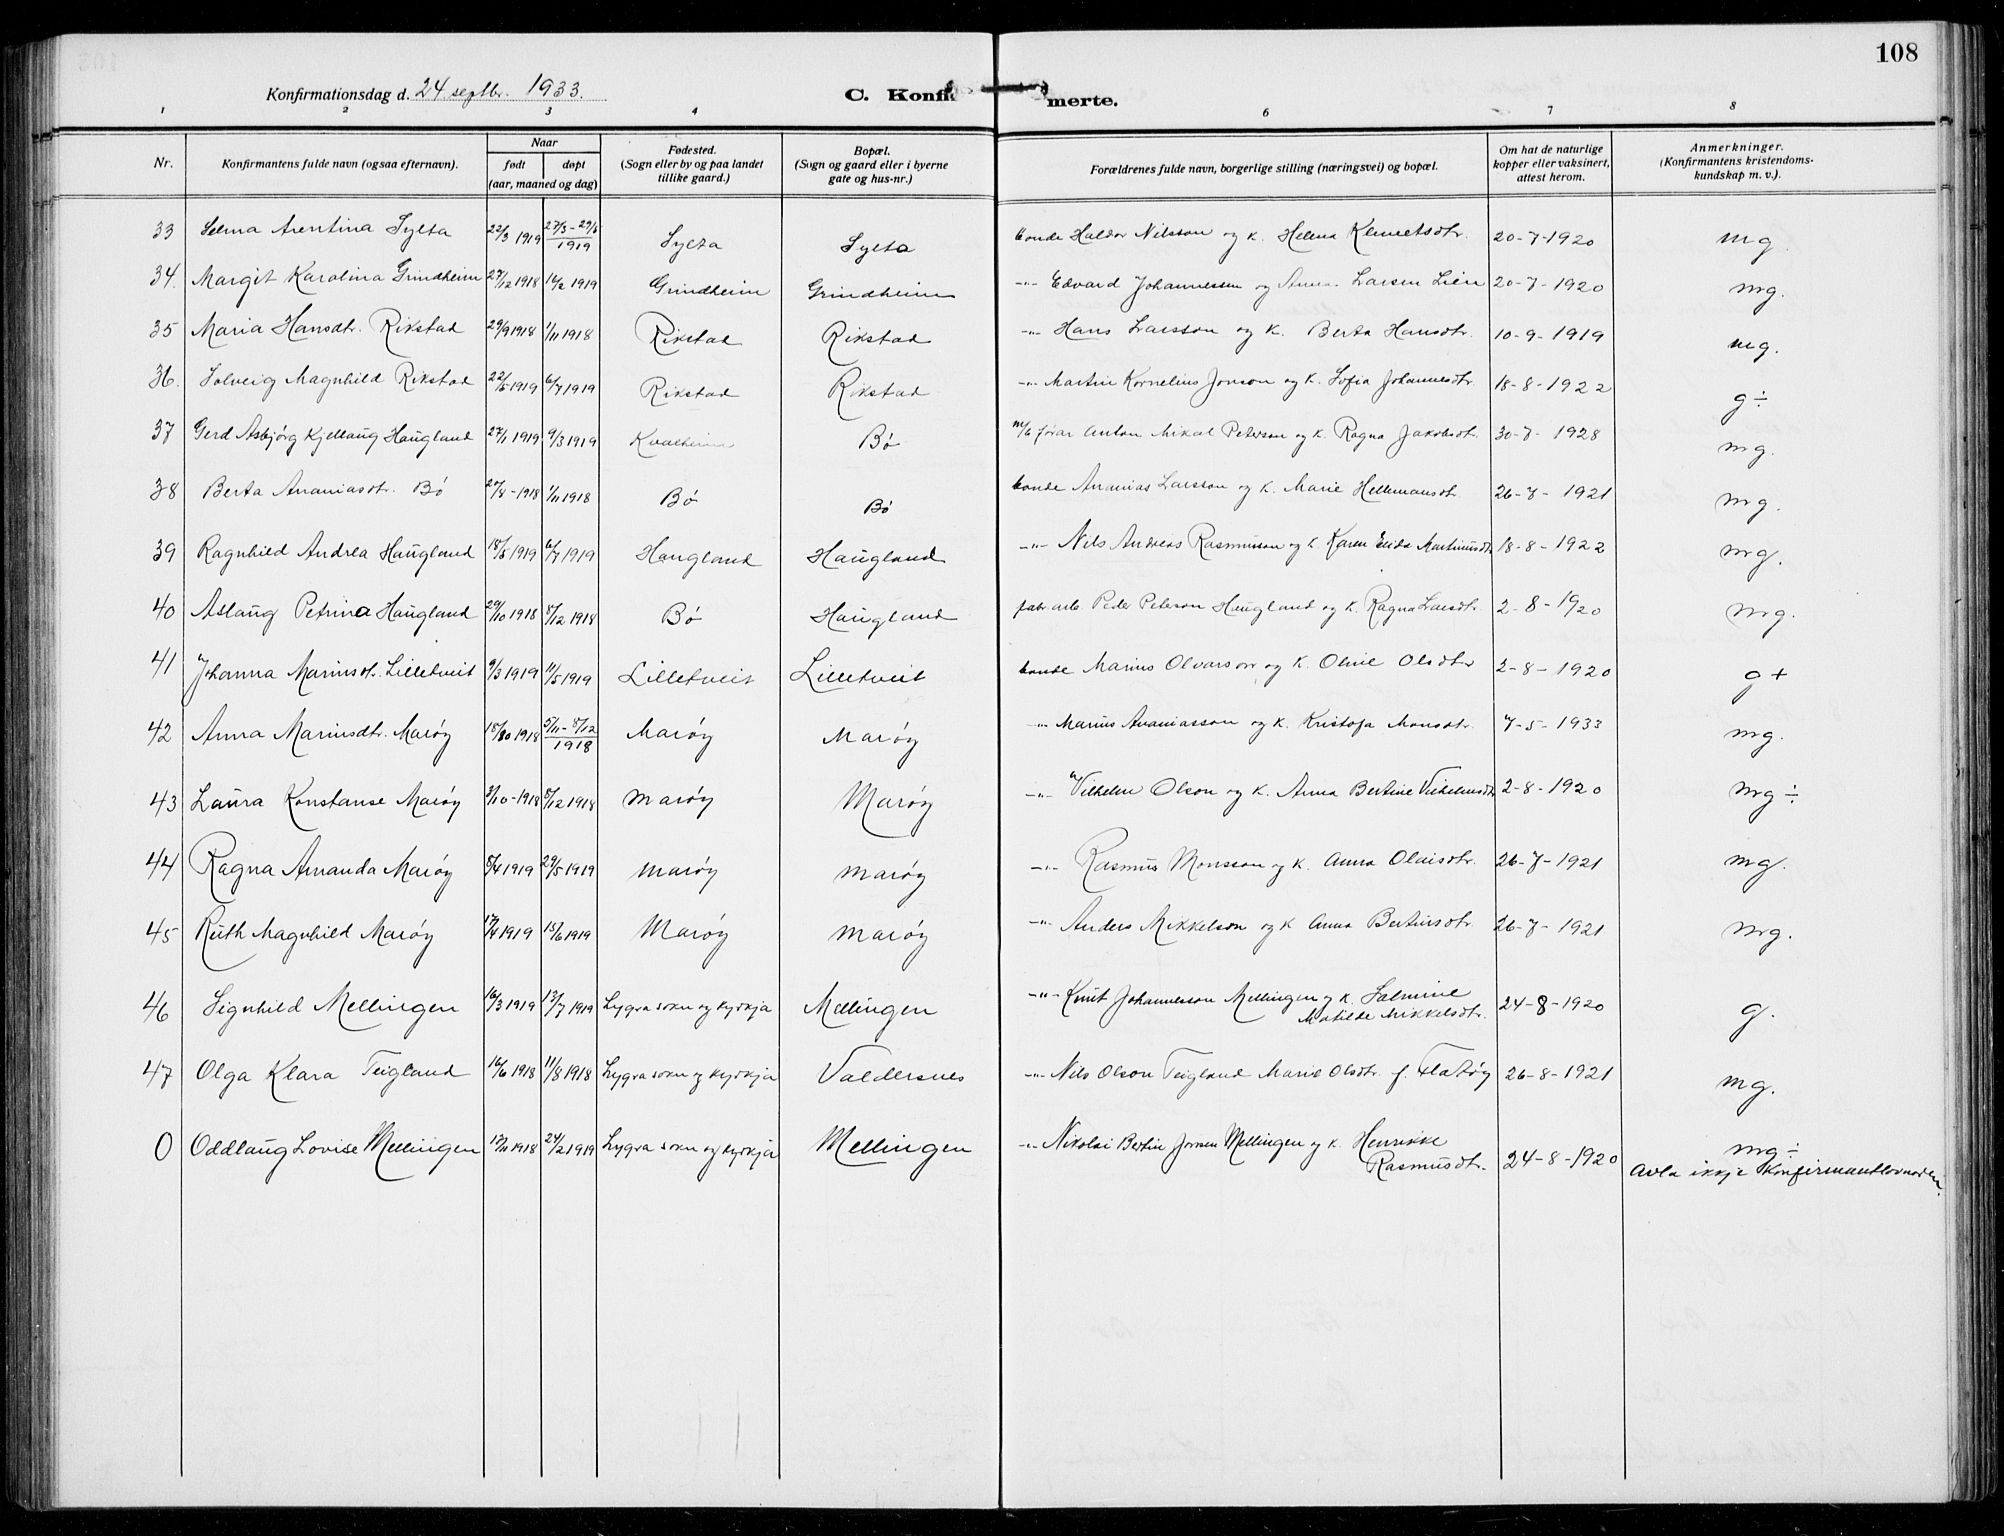 108
Konfirmationsdag d. 24. septbr. 1933.
C. Konfirmerte.
1 2 3 4 6 7 8
Nr. Konfirmantens fulde navn (ogsaa efternavn). Naar født døpt (aar, maaned og dag) Fødested. (Sogn eller by og paa landet tillike gaard.) Bopæl. (Sogn og gaard eller i byerne gate og hus-nr.) Forældrenes fulde navn, borgerlige stilling (næringsvei) og bopæl. Om hat de naturlige kopper eller vaksinert, attest herom. Anmerkninger. (Konfirmantens kristendoms-kundskap m. v.).
33 Selma Arentina Sylta 22/3 1919 27/3 - 29/5 1919 Sylta Sylta bonde Haldor Nilsson og k. Helena Klemetsdtr. 20-7-1920 mg.
34. Margit Karolina Grindheim 27/12 1918 16/2 1919 Grindheim Grindheim -"- Edvard Johannessen og Anna Larsen Lien 20-7-1920 mg.
35 Maria Hansdtr. Rikstad 29/9 1918 1/11 1918 Rikstad Rikstad -"- Hans Larsson og k. Berta Hansdtr. 10-9-1919 mg.
36. Solveig Magnhild Rikstad 22/5 1919 6/7 1919 Rikstad Rikstad -"- Martin Kornelius Jonson og k. Sofia Johannesdtr. 18-8-1922 g÷
37 Gerd Asbjørg Kjellaug Haugland 27/1 1919 9/3 1919 Kvalheim Bø m/b førar Anton Mikal Peterson og k. Ragna Jakobsdtr. 30-7-1928 mg.
38 Berta Ananiasdtr. Bø 1918 1/11 1918 Bø Bø bonde Ananias Larsson og k. Marie Hellemansdtr. 26-7-1921 mg.
39 Ragnhild Andrea Haugland 18/5 1919 6/7 1919 Haugland Haugland -"- Nils Andreas Rasmusson og k. Karen Elida Martinusdtr. 18-8-1922 mg.
40 Aslaug Petrina Haugland 29/10 1918 8/12 1918 Bø Haugland fabr. arb. Peder Peterson Haugland og k. Ragna Larsdtr. 2-8-1920 mg.
41 Johanna Mariusdtr. Lilletveit 9/3 1919 11/5 1919 Lilletveit Lilletveit bonde Marius Olvarson og k. Oline Olsdtr 2-8-1920 g+
42 Anna Mariusdtr. Marøy 18/10 1918 5/11 - 8/12 1918 Marøy Marøy -"- Marius Ananiasson og k. Kristofa Monsdtr. 7-5-1933 mg.
43 Laura Konstanse Marøy 3/10-1918 8/12 1918 Marøy Marøy -"- Vilhelm Olson og k. Anna Bertine Vilhelmsdtr 2-8-1920 mg÷
44 Ragna Amanda Marøy 8/4 1919 29/5 1919 Marøy Marøy -"- Rasmus Monsson og k. Anna Olaisdtr. 26-7-1921 mg.
45 Ruth Magnhild Marøy 17/4 1919 15/6 1919 Marøy Marøy -"- Anders Mikkelson og k Anna Bertinsdtr. 26-7-1921 mg.
46 Signhild Mellingen 16/3 1919 13/7 1919 Lygra sokn og kyrkja Mellingen -"- Knut Johannesson Mellingen og k. Salmine
Matilde Mikkelsdtr. 24-8-1920 g.
47 Olga Klara Teigland 16/6 1918 11/8 1918 Lygra sokn og kyrkja Valdersnes -"- Nils Olson Teigland Marie Olsdtr. f. Flatøy 26-8-1921 mg.
0 Oddlaug Lovise Mellingen 17/11 1918 24/2 1919 Lygra sokn og kyrkja Mellingen -"- Nikolai Bertin Jonsen Mellingen og k. Henrikke
Rasmusdtr. 24-8-1920 mg÷
Avla ikkje Konfirmantlovnaden.